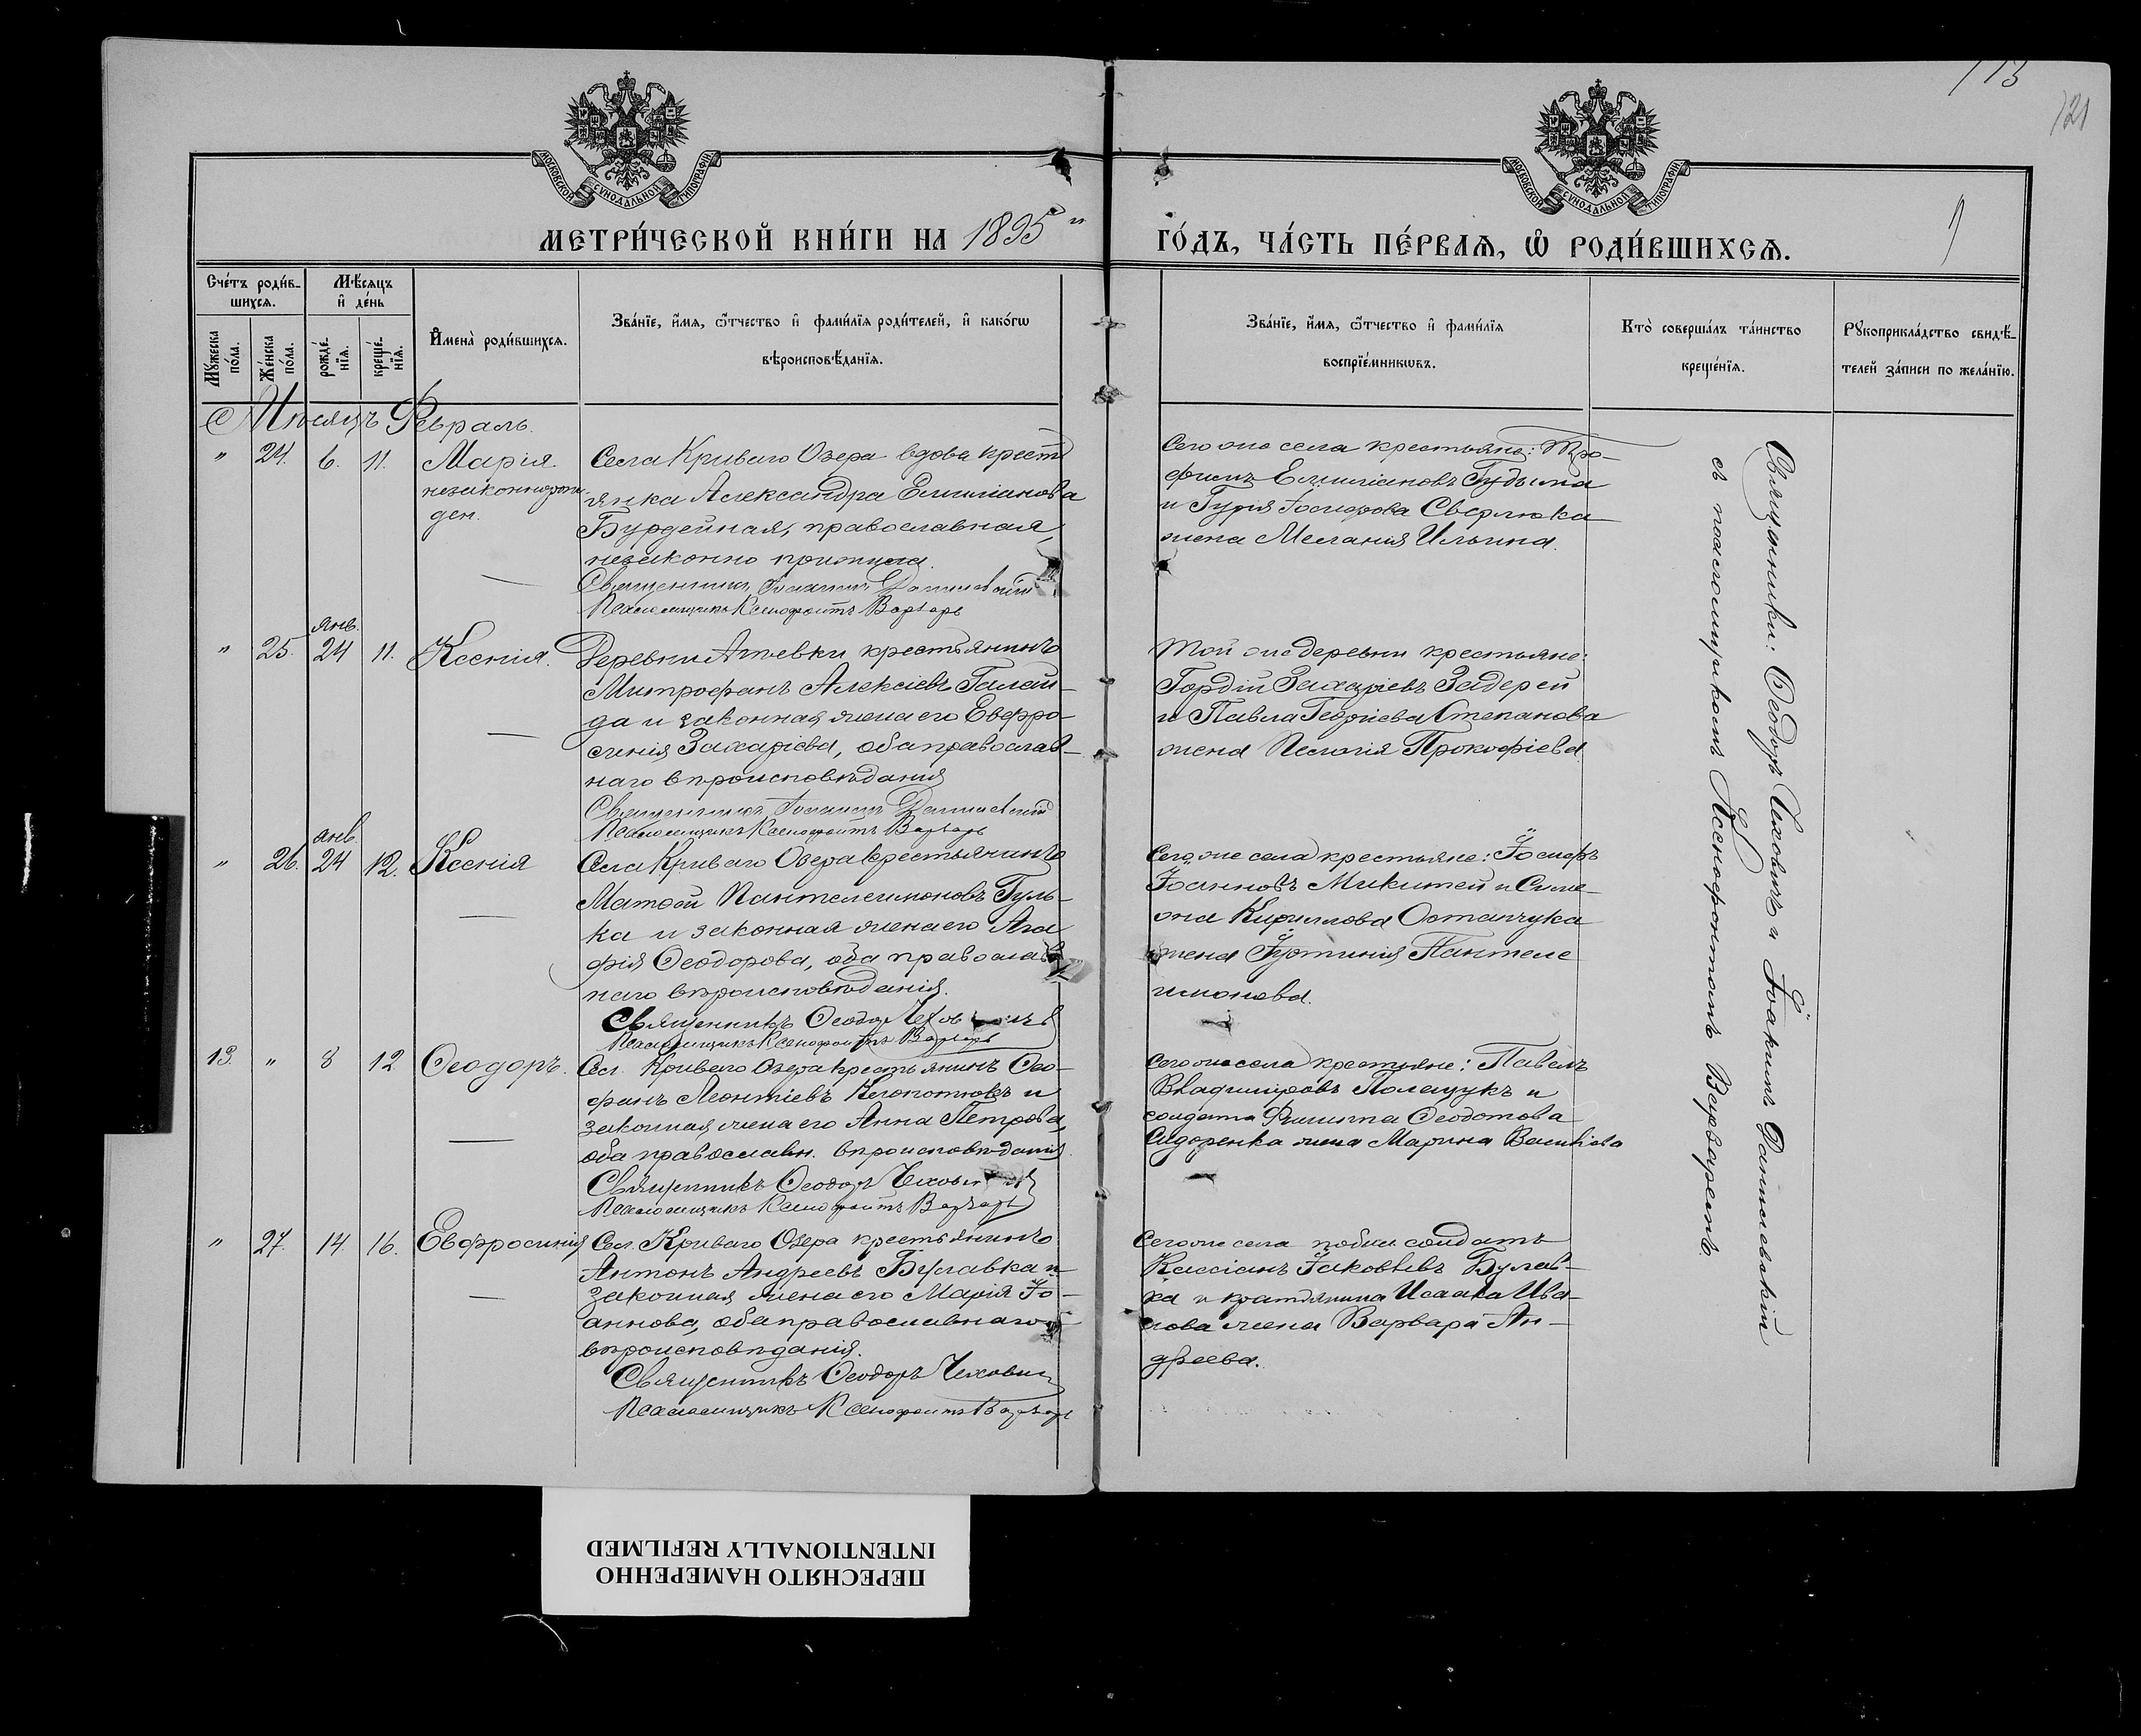 113
121
МОСКОВСКОЙ СУНОДАЛЬНОЙ ТИПОГРАФІИ
МОСКОВСКОЙ СУНОДАЛЬНОЙ ТИПОГРАФІИ
МЕТРИ́ЧЕСКОЙ КНИ́ГИ НА 1895 ГО́ДЪ, ЧА́СТЬ ПЕ́РВАѦ, Ѡ РОДИ́ВШИХСѦ.
Сче́тъ роди́в-
шихсѧ.
Мꙋжеска по́ла.
Же́нска по́ла.
Мѣ́сѧцъ
и҆ де́нь
рожде́-
нїѧ.
креще́-
нїѧ.
И҆мена̀ роди́вшихсѧ.
Зва́нїе, и҆́мѧ, ѻ҆́тчество и҆ фами́лїѧ роди́телей, и҆ како́гѡ
вѣроисповѣ́данїѧ.
Зва́нїе, и҆́мѧ, ѻ҆́тчество и҆ фами́лїѧ
воспрїе́мникѡвъ.
Кто̀ соверша́лъ та́инство
креще́нїѧ.
Рꙋкоприкла́дство свидѣ́-
телей за́писи по жела́нїю.
Мѣсяцъ Февраль.
" 24. 6. 11. Марія
незаконнорож
ден.
Села Криваго Озера вдова крестъ
янка Александра Емиліанова
Бурдейная, православная,
незаконно прижила.
Священникъ Іоакимъ Данилевскій
Псаломщикъ Ксенофонтъ Варваръ
Сего же села крестьяне: Тро-
фимъ Емиліановъ Гудыма
и Гурія Іосифова Сверлюка
жена Меланія Ильина.
" 25. янв. 24 11. Ксенія.
Деревни Агѣевки крестьянинъ
Митрофанъ Алексіевъ Галай-
да и законная жена его Евфро-
синія Захаріева, оба православ-
наго вѣроисповѣданія
Священникъ Іоакимъ Данилевскій
Псаломщикъ Ксенофонтъ Варваръ
Той же деревни крестьяне:
Гордій Захаріевъ Задерей
и Павла Георгіева Степанова
жена Пелагія Прокофіева
" 26. янв. 24 12. Ксенія
Села Криваго Озера крестьянинъ
Матѳей Пантелеимоновъ Гуль-
ка и законная жена его Ага
фія Ѳеодорова, оба православ
наго вѣроисповѣданія.
Священникъ Ѳеодоръ Чеховичъ
Псаломщикъ Ксенофонтъ Варваръ
Сего же села крестьяне: Іосифъ
Іоанновъ Микитей и Симе-
она Кириллова Остапчука
жена Іустинія Пантеле
имонова.
13. " 8 12 Ѳеодоръ.
Сел. Криваго Озера крестьянинъ Ѳео-
фанъ Леонтіевъ Клопотюкъ и
законная жена его Анна Петрова,
оба православн. вѣроисповѣданія
Священникъ Ѳеодоръ Чеховичъ
Псаломщикъ Ксенофонтъ Варваръ
Сего же села крестьяне: Павелъ
Владиміровъ Полещукъ и
солдата Филиппа Ѳеодотова
Сидоренка жена Марина Василіева
" 27. 14. 16. Евфросинія
Сел. Криваго Озера крестьянинъ
Антонъ Андреевъ Буславка и
законная жена его Марія Іо-
аннова, оба православнаго
вѣроисповѣданія.
Священникъ Ѳеодоръ Чехович
Псаломщикъ Ксенофонтъ Варваръ
Сего же села солдатъ
Кассіанъ Іаковлевъ Булав-
ка и крестьянина Исаака Ива-
нова жена Варвара Ан-
дреева.
Священники: Ѳеодоръ Чеховичъ и Іоакимъ Данилевскій
съ псаломщикомъ Ксенофонтомъ Варваремъ.
ПЕРЕСНЯТО НАМЕРЕННО
INTENTIONALLY REFILMED